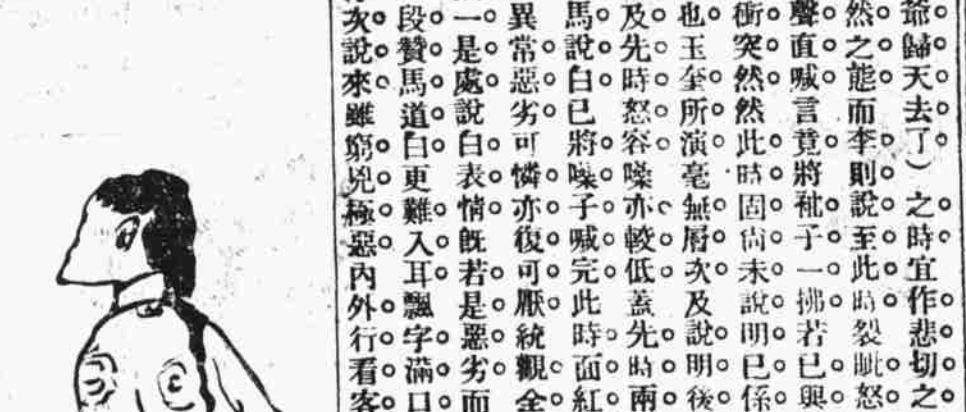 爺歸天去了）之時宜作悲切之
然之態而李則說至此時裂眦怒
聲直喊言竟將袖子一拂若已與
衝突然然此時固尚未說明已係
也玉奎所演毫無層次及說明後
及先時怒容嗓亦較低蓋先時兩
馬說白已將嗓子喊完此時面紅
異常惡劣可憐亦復可厭統觀全
一是處說白表情既若是惡劣而
段贊馬道白更難入耳飄字滿口
次說來雖窮兇極惡內外行看客